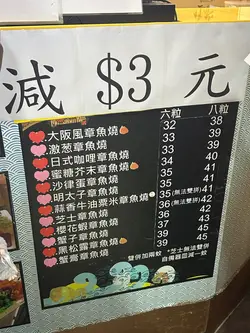 減 $3 元
六粒 八粒
大阪風章魚燒 32 38
激葱章魚燒 33 39
日式咖哩章魚燒 33 39
蜜糖芥末章魚燒 34 40
沙律蛋章魚燒 35 41
明太子章魚燒 35(無法雙拼) 41
蒜香牛油粟米章魚燒 35 41
芝士章魚燒 36(無法雙拼) 42
櫻花蝦章魚燒 36 42
蟹子章魚燒 37 43
黑松露章魚燒 39 45
蟹膏章魚燒 39 45
雙併加兩蚊 *芝士無法雙併
自備器皿減一蚊